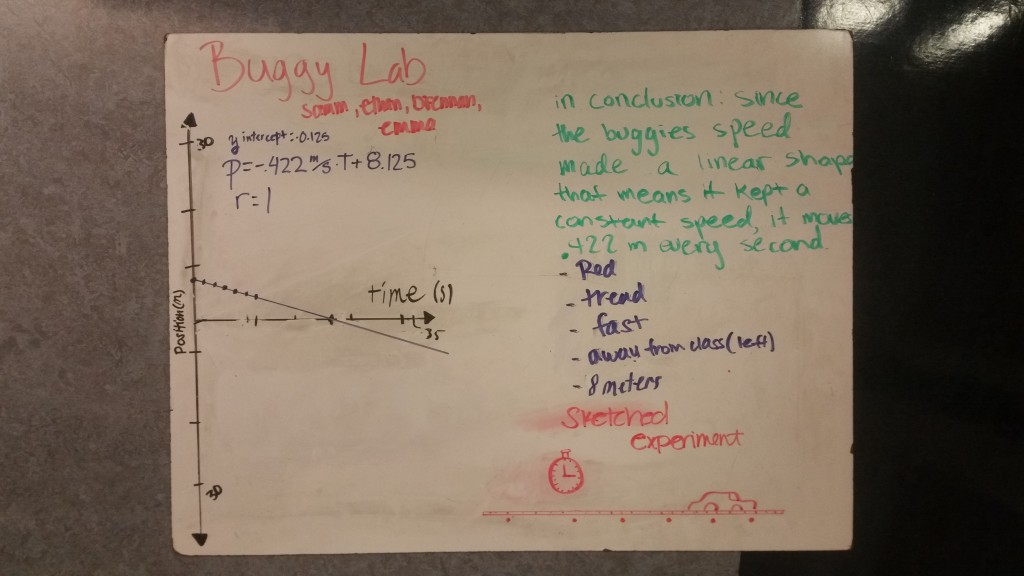 Buggy Lab
samm, ethan, brennan,
emma
30
y intercept: -0.125
P=-.422 m/s · T+8.125
r=1
time (s)
35
Position(m)
30
in conclusion: since
the buggies speed
made a linear shape
that means it kept a
constant speed, it moves
.422 m every second.
- Red
- tread
- fast
- away from class(left)
- 8 meters
Sketched
experiment